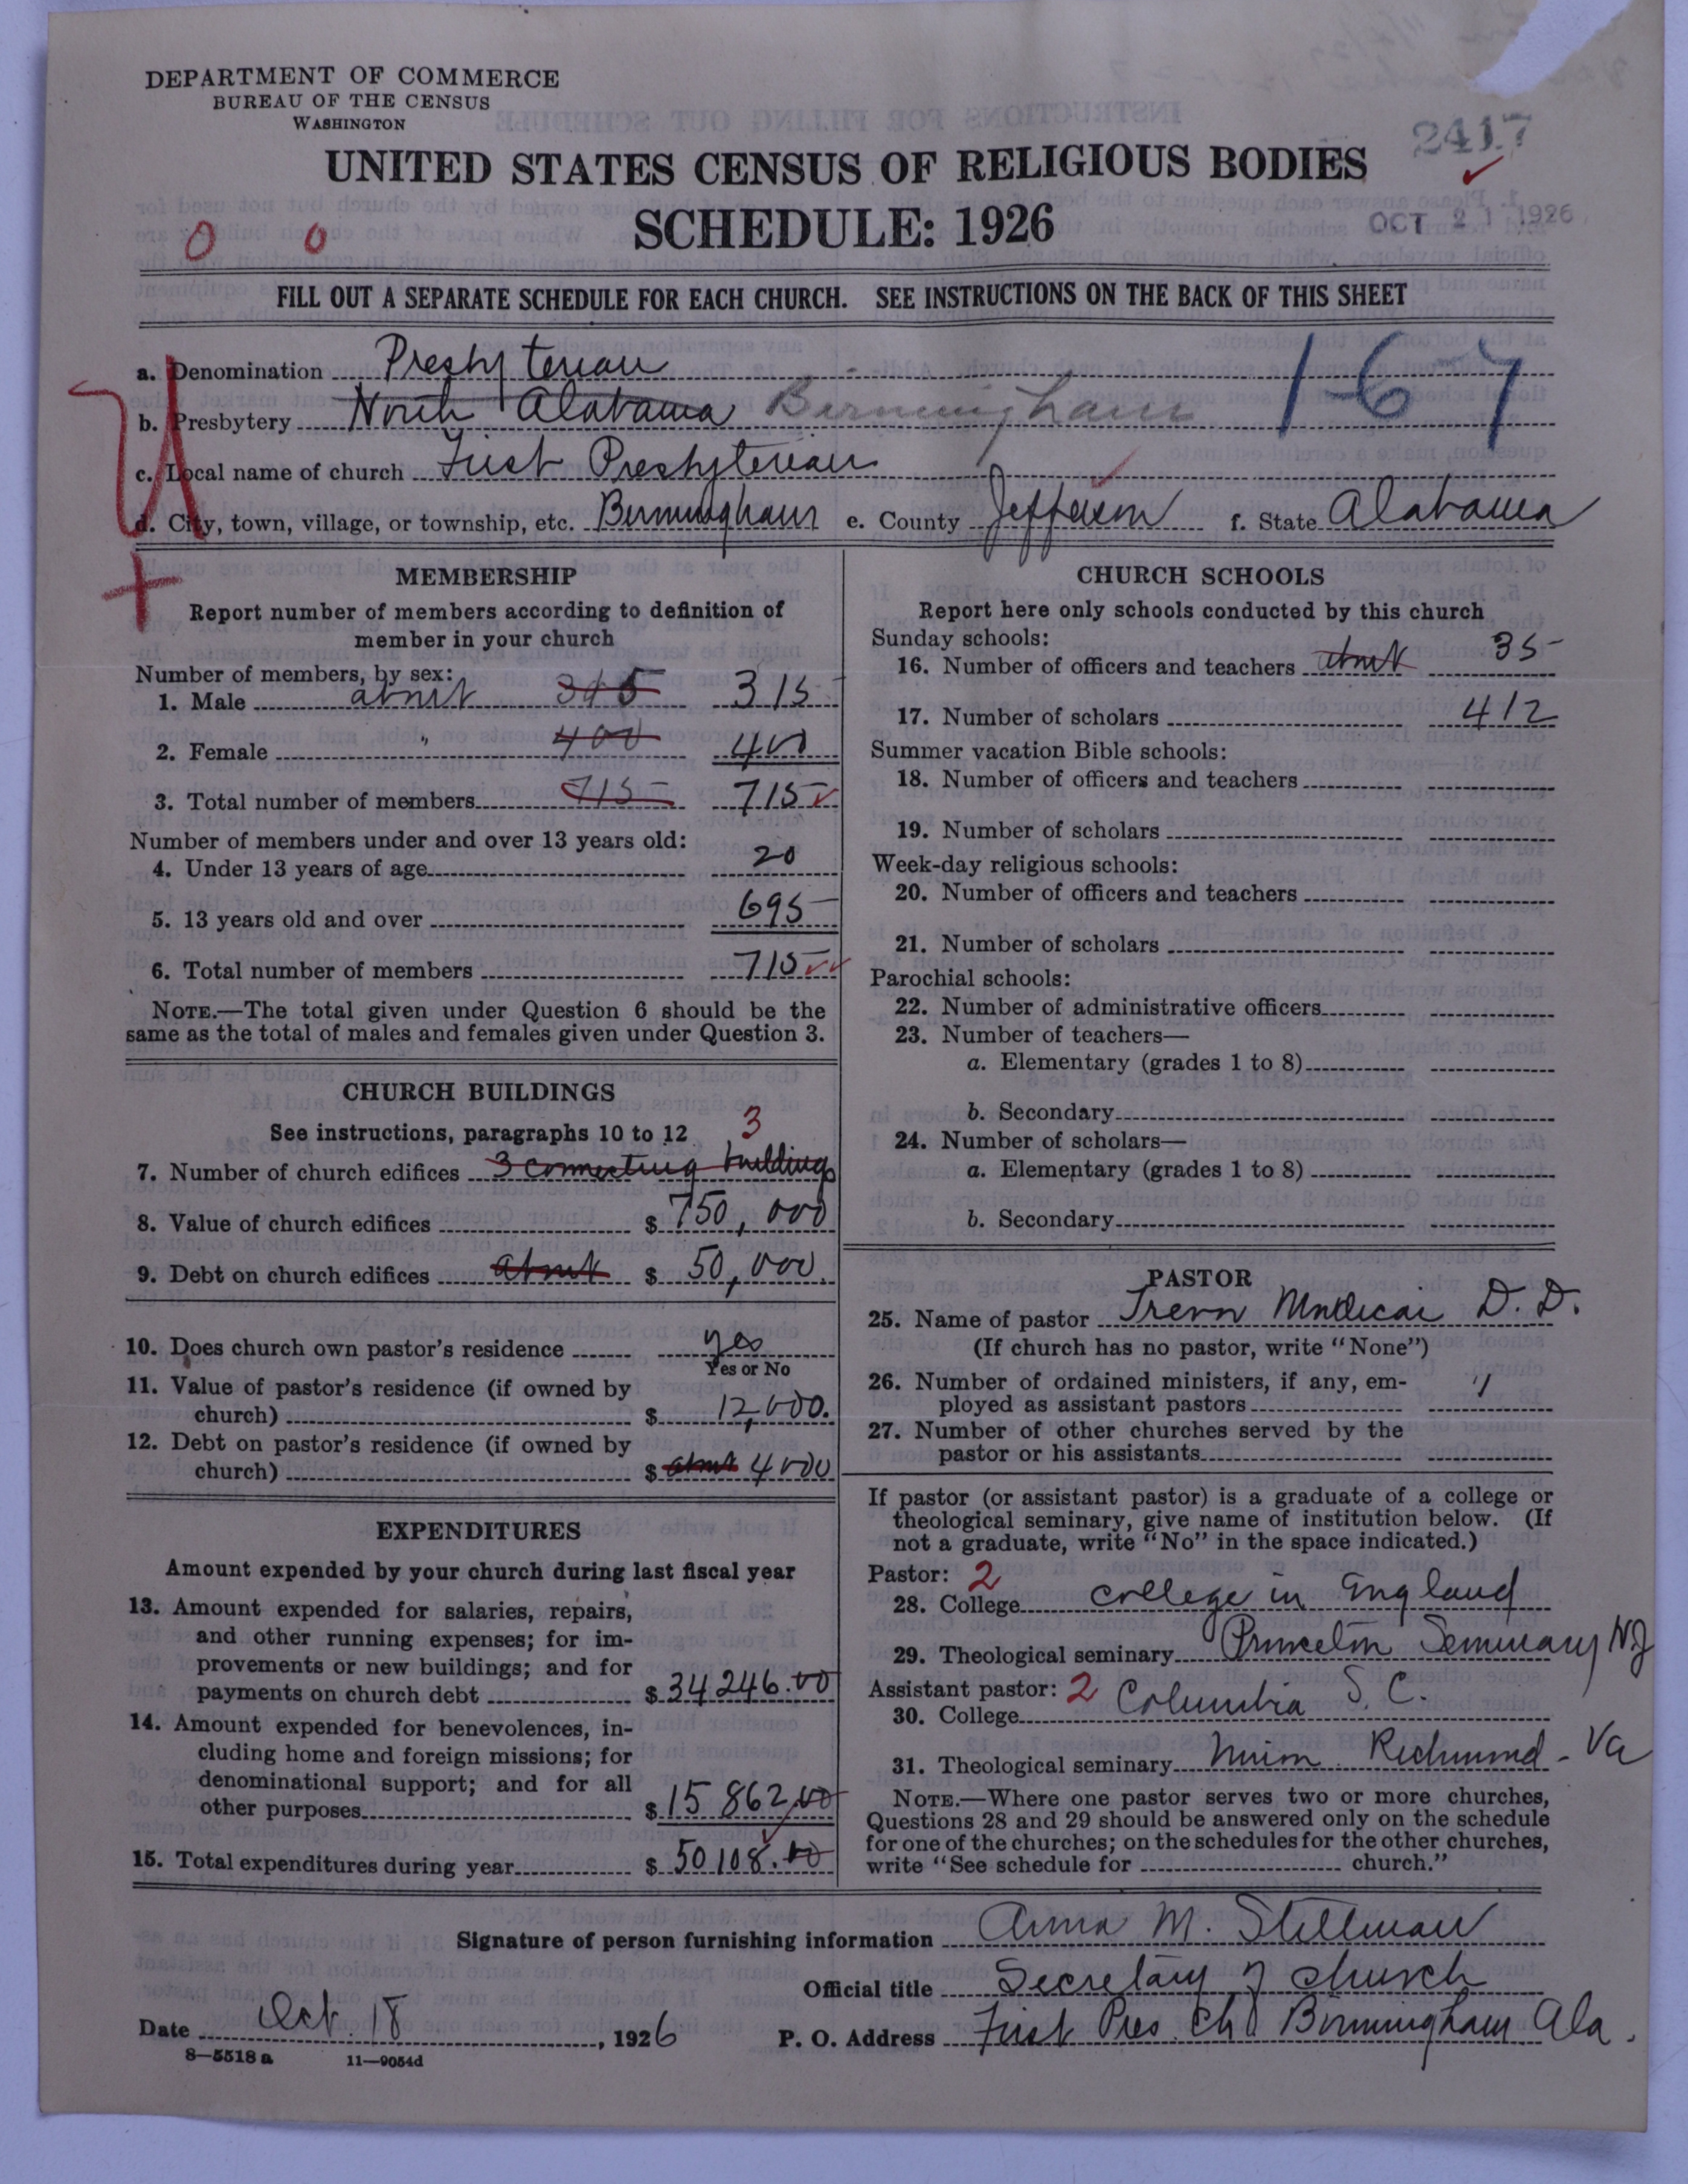 DEPARTMENT OF COMMERCE
BUREAU OF THE CENSUS
WASHINGTON
2417
UNITED STATES CENSUS OF RELIGIOUS BODIES
SCHEDULE: 1926
OCT 21 1926
0 0
FILL OUT A SEPARATE SCHEDULE FOR EACH CHURCH. SEE INSTRUCTIONS ON THE BACK OF THIS SHEET
a. Denomination Presbyterian
1-6-7
b. Presbytery North Alabama Birmingham
c. Local name of church First Presbyterian
d. City, town, village, or township, etc. Birmingham e. County Jefferson f. State Alabama
MEMBERSHIP
Report number of members according to definition of
member in your church
Number of members, by sex:
1. Male about 315 315
2. Female " 400 400
3. Total number of members 715 715
Number of members under and over 13 years old:
4. Under 13 years of age 20
5. 13 years old and over 695
6. Total number of members 715
NOTE.—The total given under Question 6 should be the
same as the total of males and females given under Question 3.
CHURCH BUILDINGS
See instructions, paragraphs 10 to 12 3
7. Number of church edifices 3 connecting buildings
8. Value of church edifices $ 750,000
9. Debt on church edifices about $ 50,000.
10. Does church own pastor's residence yes
Yes or No
11. Value of pastor's residence (if owned by
church) $ 12,000.
12. Debt on pastor's residence (if owned by
church) $ about 4000
EXPENDITURES
Amount expended by your church during last fiscal year
13. Amount expended for salaries, repairs,
and other running expenses; for im-
provements or new buildings; and for
payments on church debt $ 34246.00
14. Amount expended for benevolences, in-
cluding home and foreign missions; for
denominational support; and for all
other purposes $ 15 862.00
15. Total expenditures during year $ 50108.00
CHURCH SCHOOLS
Report here only schools conducted by this church
Sunday schools:
16. Number of officers and teachers about 35
17. Number of scholars 412
Summer vacation Bible schools:
18. Number of officers and teachers
19. Number of scholars
Week-day religious schools:
20. Number of officers and teachers
21. Number of scholars
Parochial schools:
22. Number of administrative officers
23. Number of teachers—
a. Elementary (grades 1 to 8)
b. Secondary
24. Number of scholars—
a. Elementary (grades 1 to 8)
b. Secondary
PASTOR
25. Name of pastor Trevor Mordecai D. D.
(If church has no pastor, write "None")
26. Number of ordained ministers, if any, em-
ployed as assistant pastors 1
27. Number of other churches served by the
pastor or his assistants
If pastor (or assistant pastor) is a graduate of a college or
theological seminary, give name of institution below. (If
not a graduate, write "No" in the space indicated.)
Pastor: 2
28. College college in England
29. Theological seminary Princeton Seminary NJ
Assistant pastor: 2
30. College Columbia S. C.
31. Theological seminary Union Richmond - Va
NOTE.—Where one pastor serves two or more churches,
Questions 28 and 29 should be answered only on the schedule
for one of the churches; on the schedules for the other churches,
write "See schedule for church."
Signature of person furnishing information Anna M. Stillman
Official title Secretary of church
Date Oct. 18, 1926 P. O. Address First Pres. Ch Birmingham Ala.
8—5518 a 11—9054d